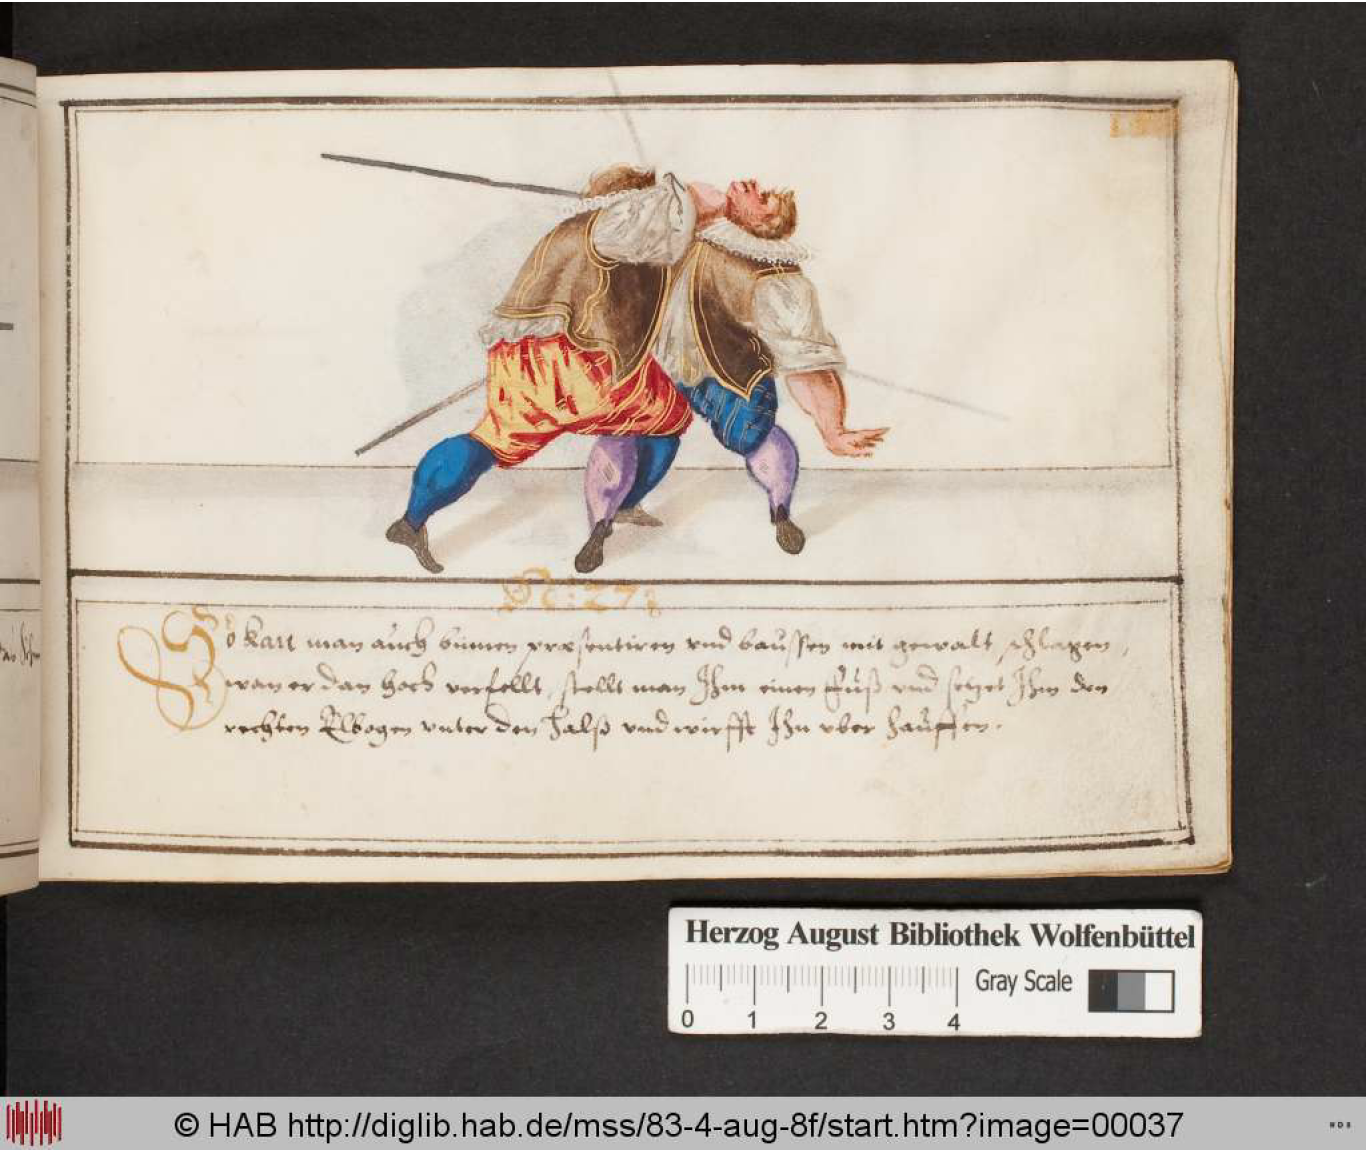 N: 27:
So kan man auch binnen præsentiren vnd baussen mit gewalt schlagen,
wan er dan hoch verfellt, stellt man Ihm einen Fuß vnd setzet Ihm den
rechten Elbogen vnter den Halß vnd wirfft Ihn vber hauffen.
Herzog August Bibliothek Wolfenbüttel
Gray Scale
0 1 2 3 4
© HAB http://diglib.hab.de/mss/83-4-aug-8f/start.htm?image=00037